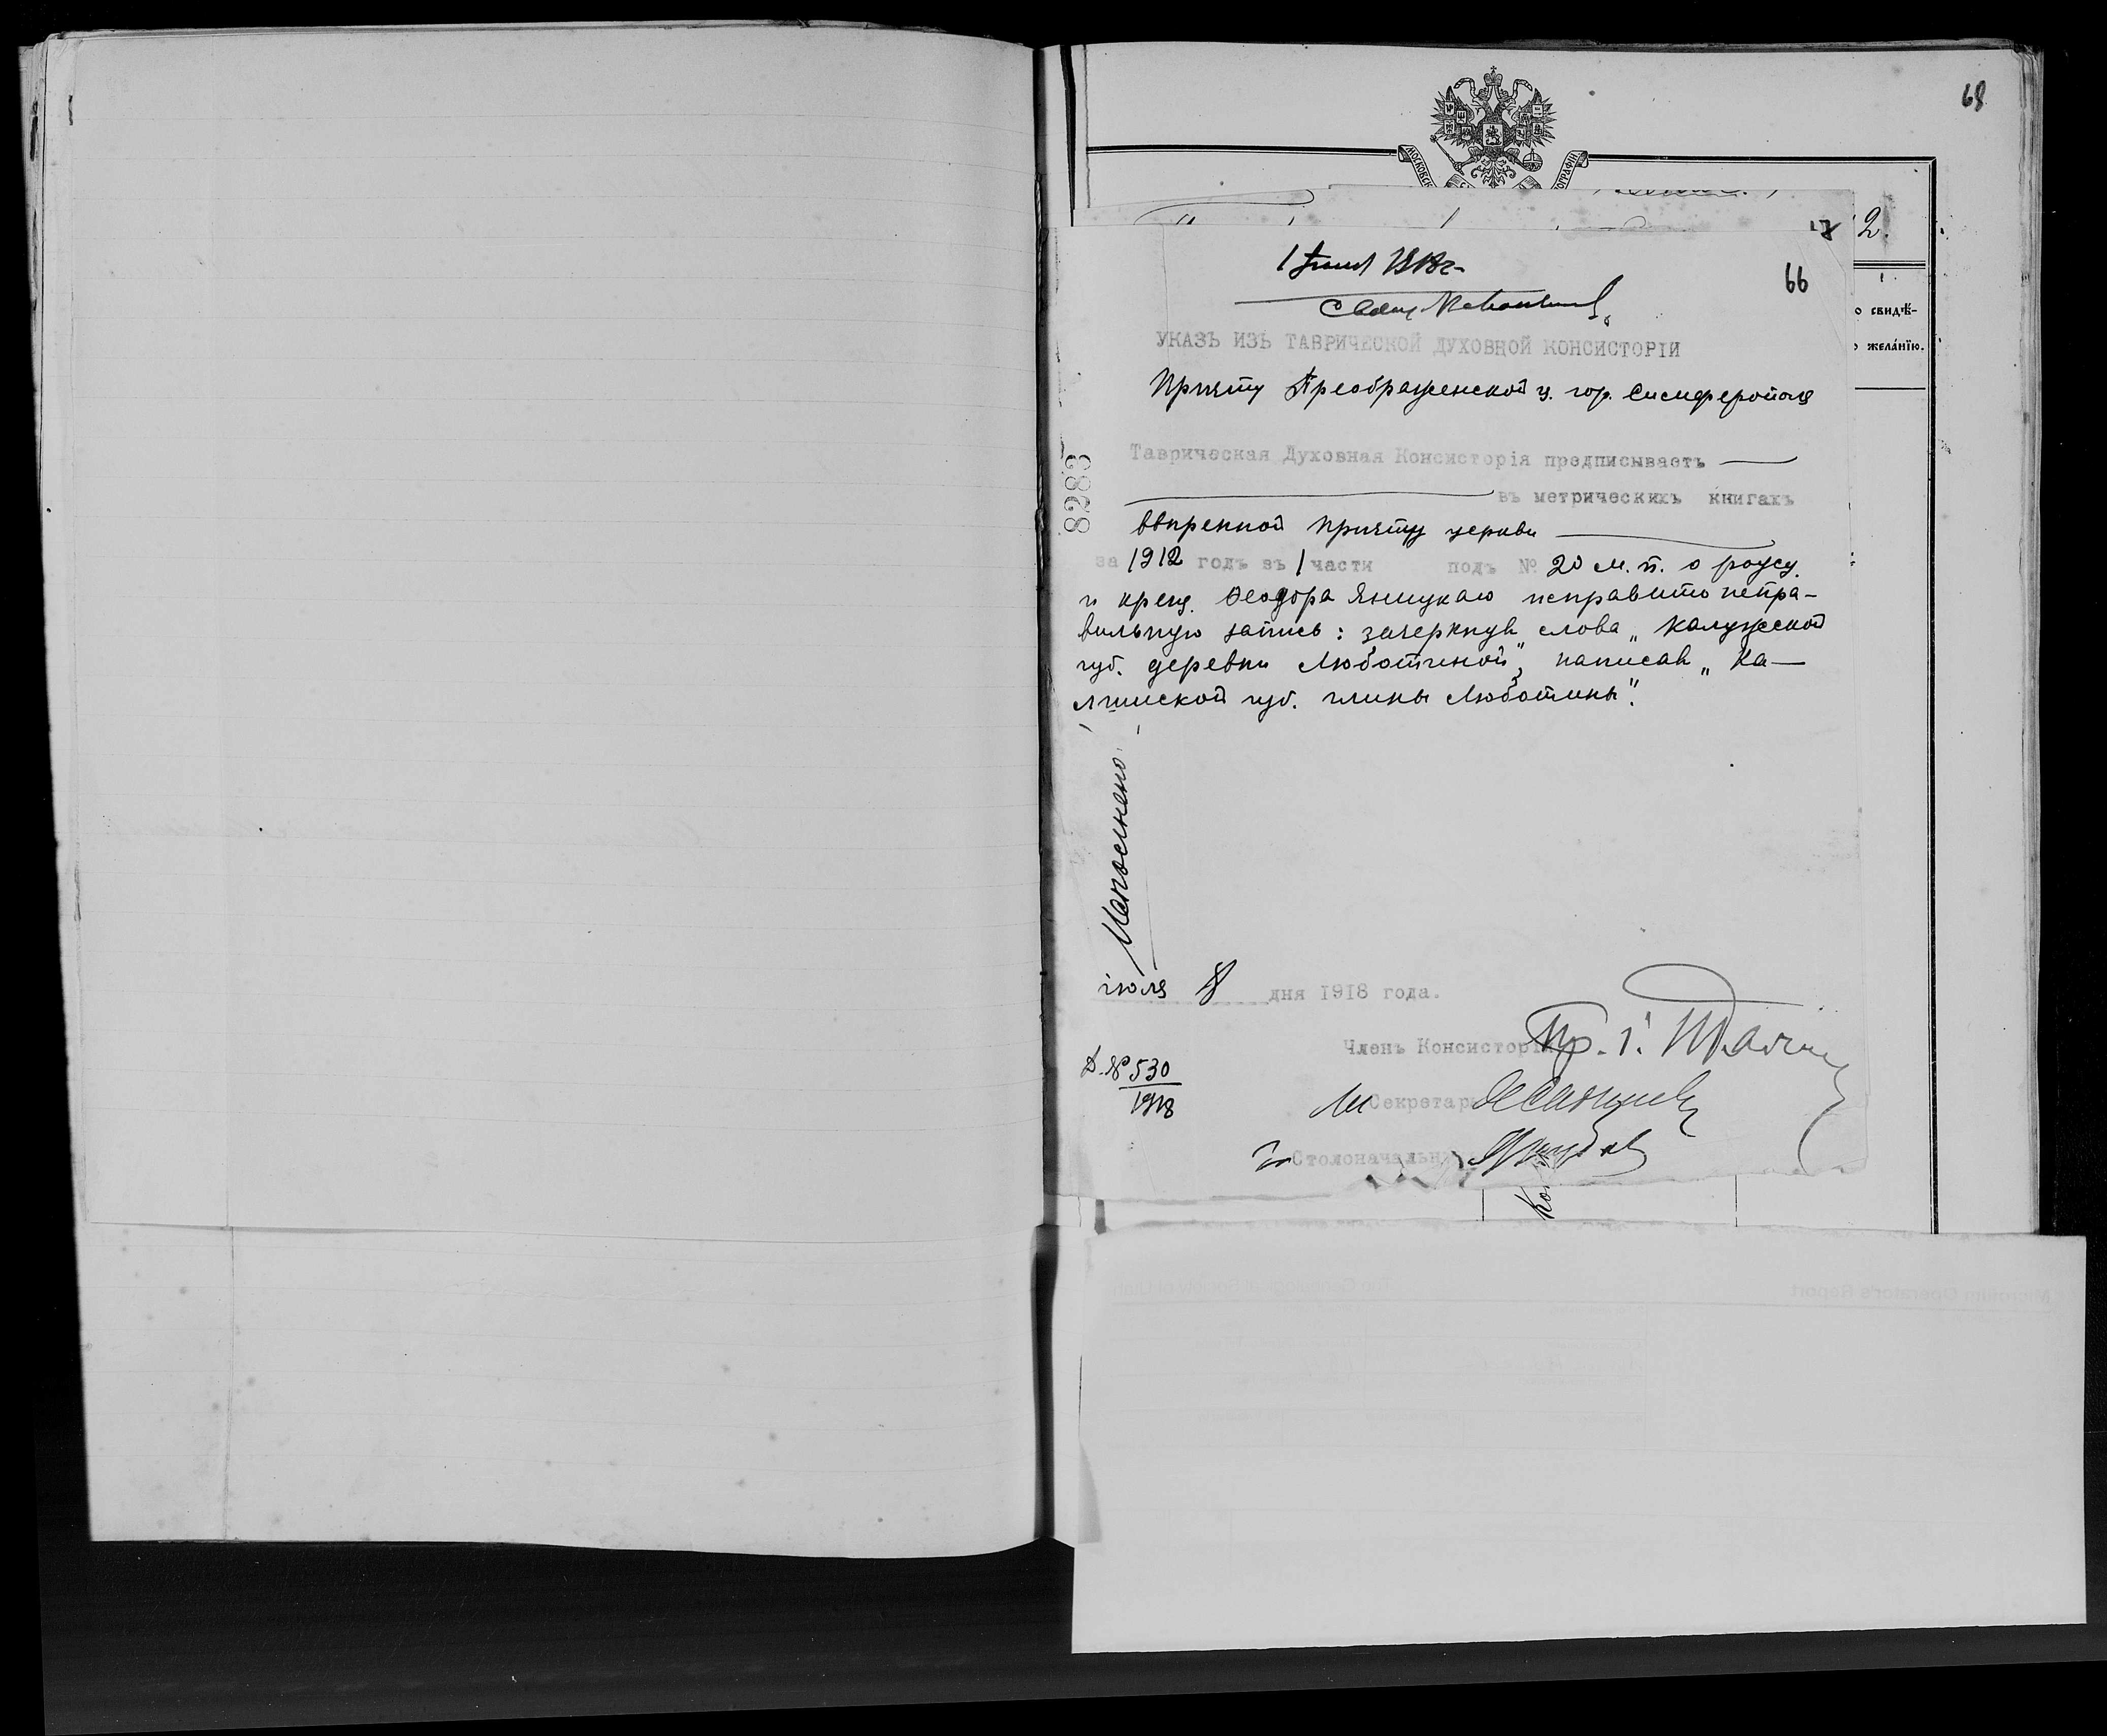 68
2.
66
о свидѣ-
желанїю.
УКАЗЪ ИЗЪ ТАВРИЧЕСКОЙ ДУХОВНОЙ КОНСИСТОРІИ
Причту Преображенской ц. гор. Симферополя
8283
Таврическая Духовная Консисторія предписываетъ
въ метрическихъ книгахъ
ввѣренной причту церкви
за 1912 годъ въ 1 части подъ № 20 м. п. о рожд.
и крещ. Ѳеодора Яницкаго исправить непра-
вильную запись: зачеркнувъ слова „Калужской
губ. деревни Люботиной", написавъ „Ка-
лишской губ. гмины Люботинь".
Исполнено
іюля 8 дня 1918 года.
Членъ Консисторіи Пр. І.
Д. № 530
1918
Секретарь
Столоначальни